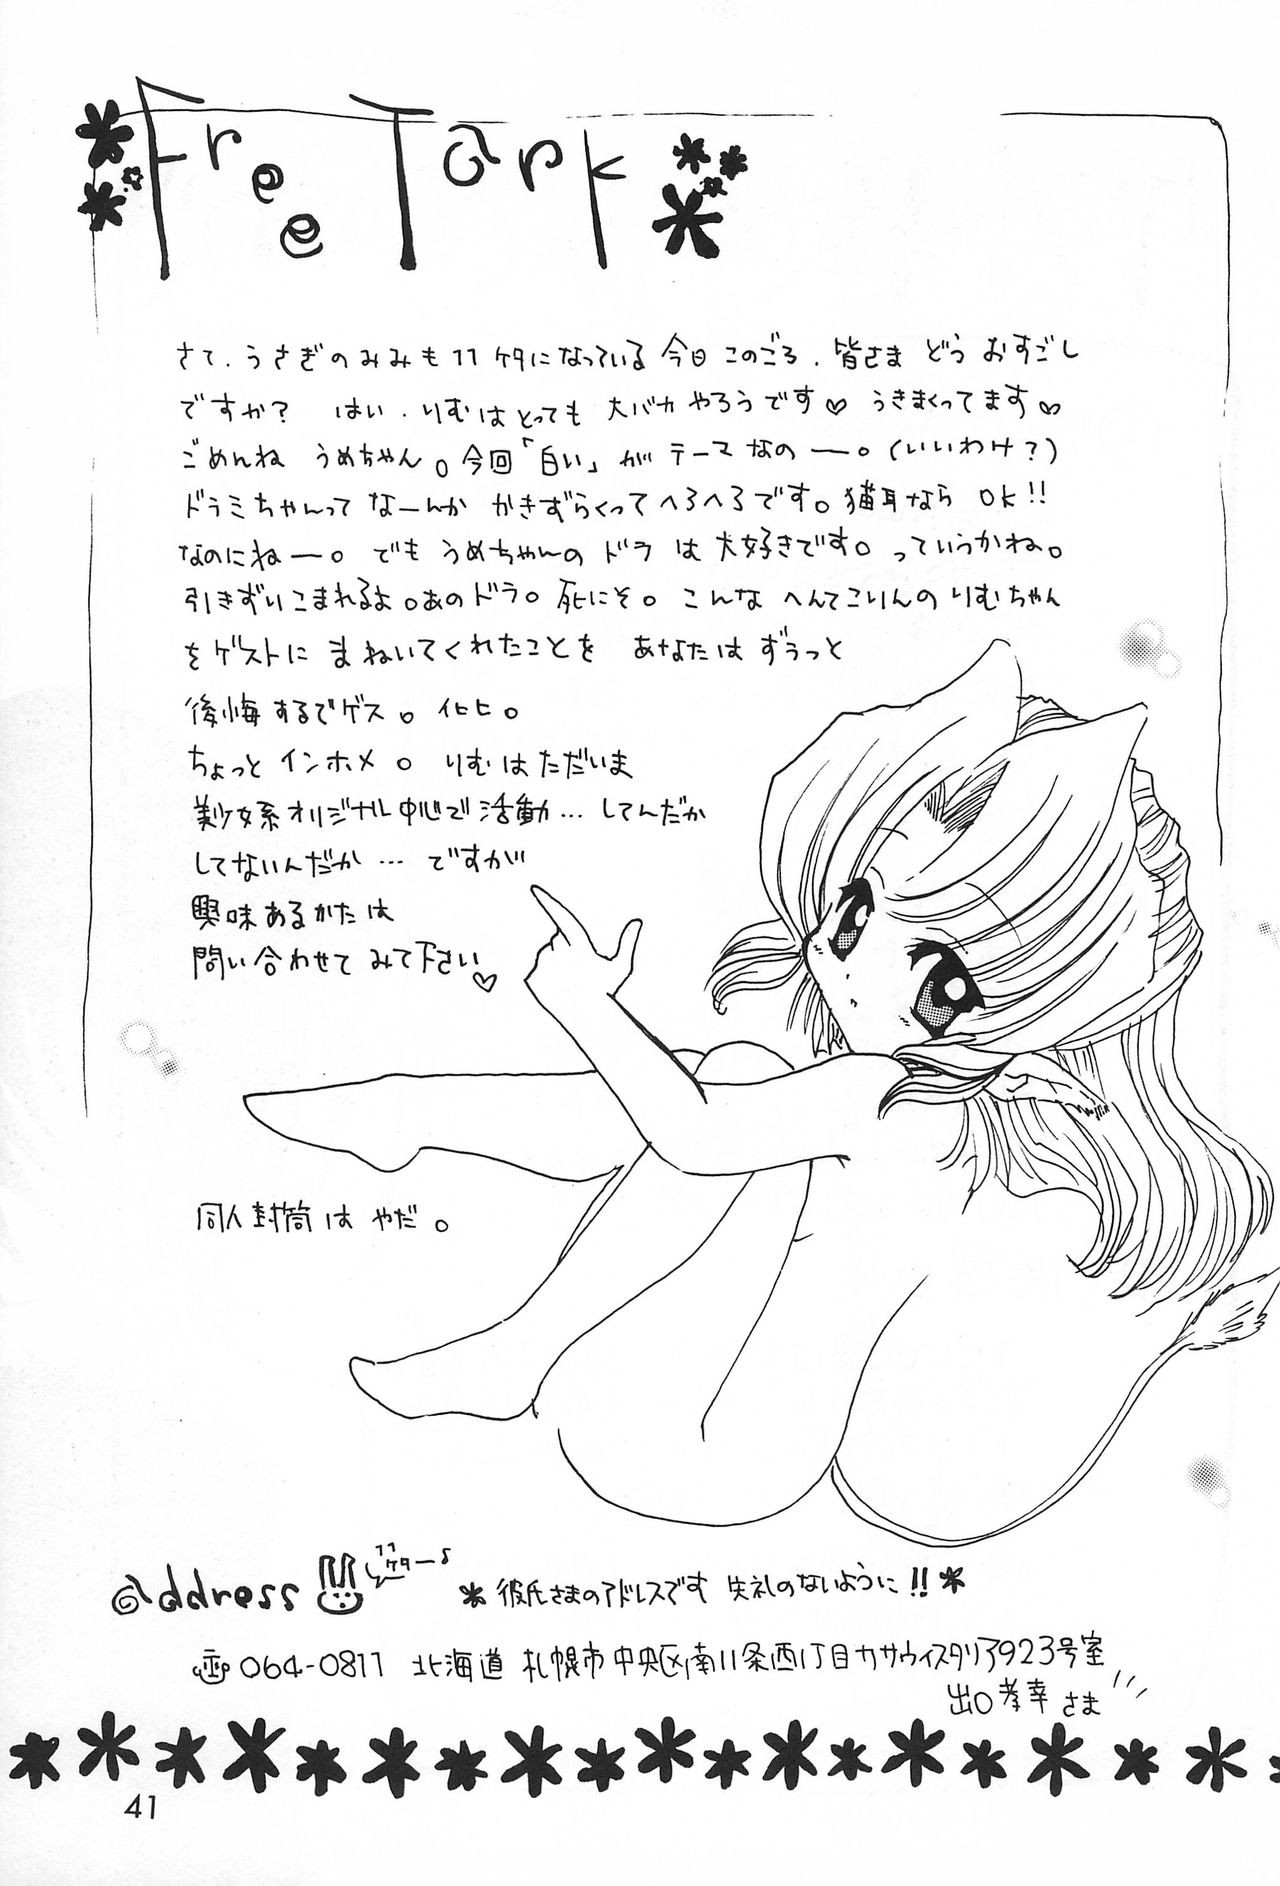 Free Tark
さて、うさぎのみみも11ケタになっている今日このごろ、皆さまどうおすごし
ですか? はい、りむはとっても大バカやろうです♡ うきまくってます♡
ごめんねうめちゃん。今回「白い」がテーマなのー。(いいわけ?)
ドラミちゃんってなーんかかきずらくってへろへろです。猫耳ならOK!!
なのにねー。でもうめちゃんのドラは大好きです。っていうかね。
引きずいこまれるよ。あのドラ。死にそ。こんなへんてこりんのりむちゃん
をゲストにまねいてくれたことをあなたはずうっと
後悔するでゲス。イヒヒ。
ちょっとインホメ。りむはただいま
美少女系オリジナル中心で活動…してんだか
してないんだか…ですが
興味あるかたは
問い合わせてみて下さい♡
同人封筒はやだ。
@ddress
11ケタ〜♪
*彼氏さまのアドレスです 失礼のないように!!*
〒064-0811 北海道札幌市中央区南11条西1丁目カサウィスタリア923号室
出口孝幸さま
41